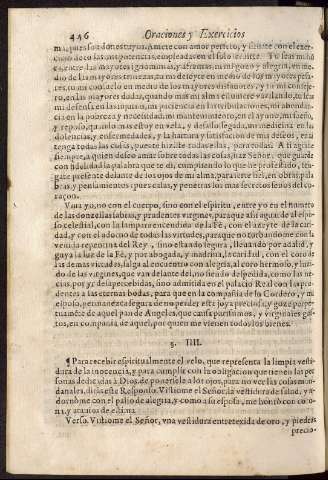 446 Oraciones y Exercicios
ma, pues so a donestuyos. Amete con amor perfeto, y
cio de tus alabanças, empleada en el solo
entre las mayores ignominias, y afrentas, mi regozo y alegria, en me-
dio de las mayores tristezas,
res, mi consuelo en medio de los mayores disgustos, y tu mi conse-
jo, en las mayores dudas,
mi defensa en las injurias, mi paciencia en las tribulaciones, mi abundan-
cia en la pobreza y necesidad, mi mantenimiento, en el ayuno, mi sueño,
y reposo, quando mas estoy en vela, y desasosiegada, mi medicina en la
dolencias, y enfermedades, y el la hartura y satisfacion de mis deseos, en ti
tenga todas las cosas, puesto
siempre, a quien deseo amar sobre todas las cosas, haz Señor, que guarde
con fidelidad la palabra que te di, cumpliendo lo que he professado, ten-
gate presente delante de los ojos de mi alma, para serte fiel, en obras, pala-
bras, y pensamientos; pues calas, y penetras los mas secretos senos del co-
raçon.
Viva yo, no con el cuerpo, sino con el espiritu, entre yo en el numero
de las donzellas sabias, y prudentes virgines, para que assi aguarde al espo-
so celestial, con la lampara encendida de la Fé, con el azeyte de la cari-
dad, y con el adorno de todas las virtudes, para que no turbandome con la
venida repentina del Rey, sino estando segura, llevando por adalid, y
guya la luz de la Fé, y por abogada, y madrina, la caridad, con el coro de
las demas virtudes, salga al encuentro con alegria, al coro hermoso, y luzi-
do de las virgines, que van delante del, no siendo despedida, como las ne-
cias, por yr desapercebidas, sino admitida en el palacio Real con las pru-
dentes a las eternas bodas, para que en la compañia de la Cordero, y mi
esposo, eternamente segura de no perder esta joya preciosa, y goze perpe-
tuamente de aquel pan de Angeles, que causa purissimos, y virginales gus-
tos, en compañia de aquel, por quien me vienen todos los bienes.
§. IIII.
¶ Para recebir espiritualmente el velo, que representa la limpia vesti-
dura de la inocencia, y para cumplir con la obligacion que tienen las per
sonas dedicadas à Dios, de ponersele a los ojos, para no ver las cosas mũ-
danales, dirás este Responso. Vistiome el Señor, la vestidura de salud, y a-
dornome con el palio de alegria, y como a su esposa, me honró con coro-
na, y atavios de estima.
Verso. Vistiome el Señor, vna vestidura entretexida de oro, y piedras
precio-